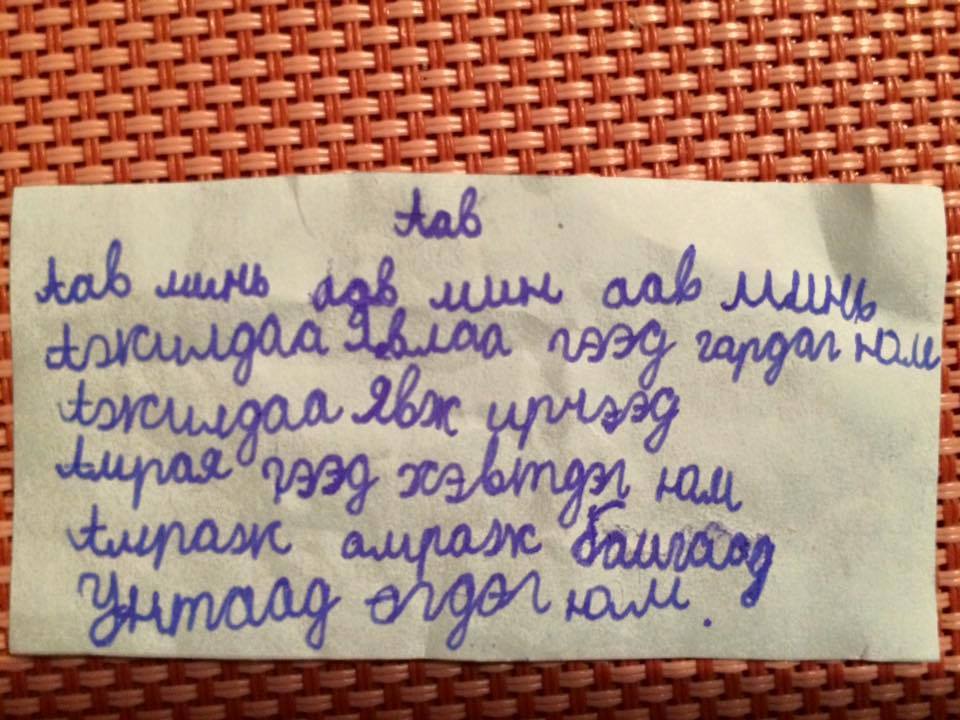 Аав
Аав минь аав мин аав минь
Ажилдаа Явлаа гээд гардаг юм
Ажилдаа Явж ирчээд
Амрая гээд хэвтдэг юм
Амраж амраж байгаад
Унтаад өгдэг юм.